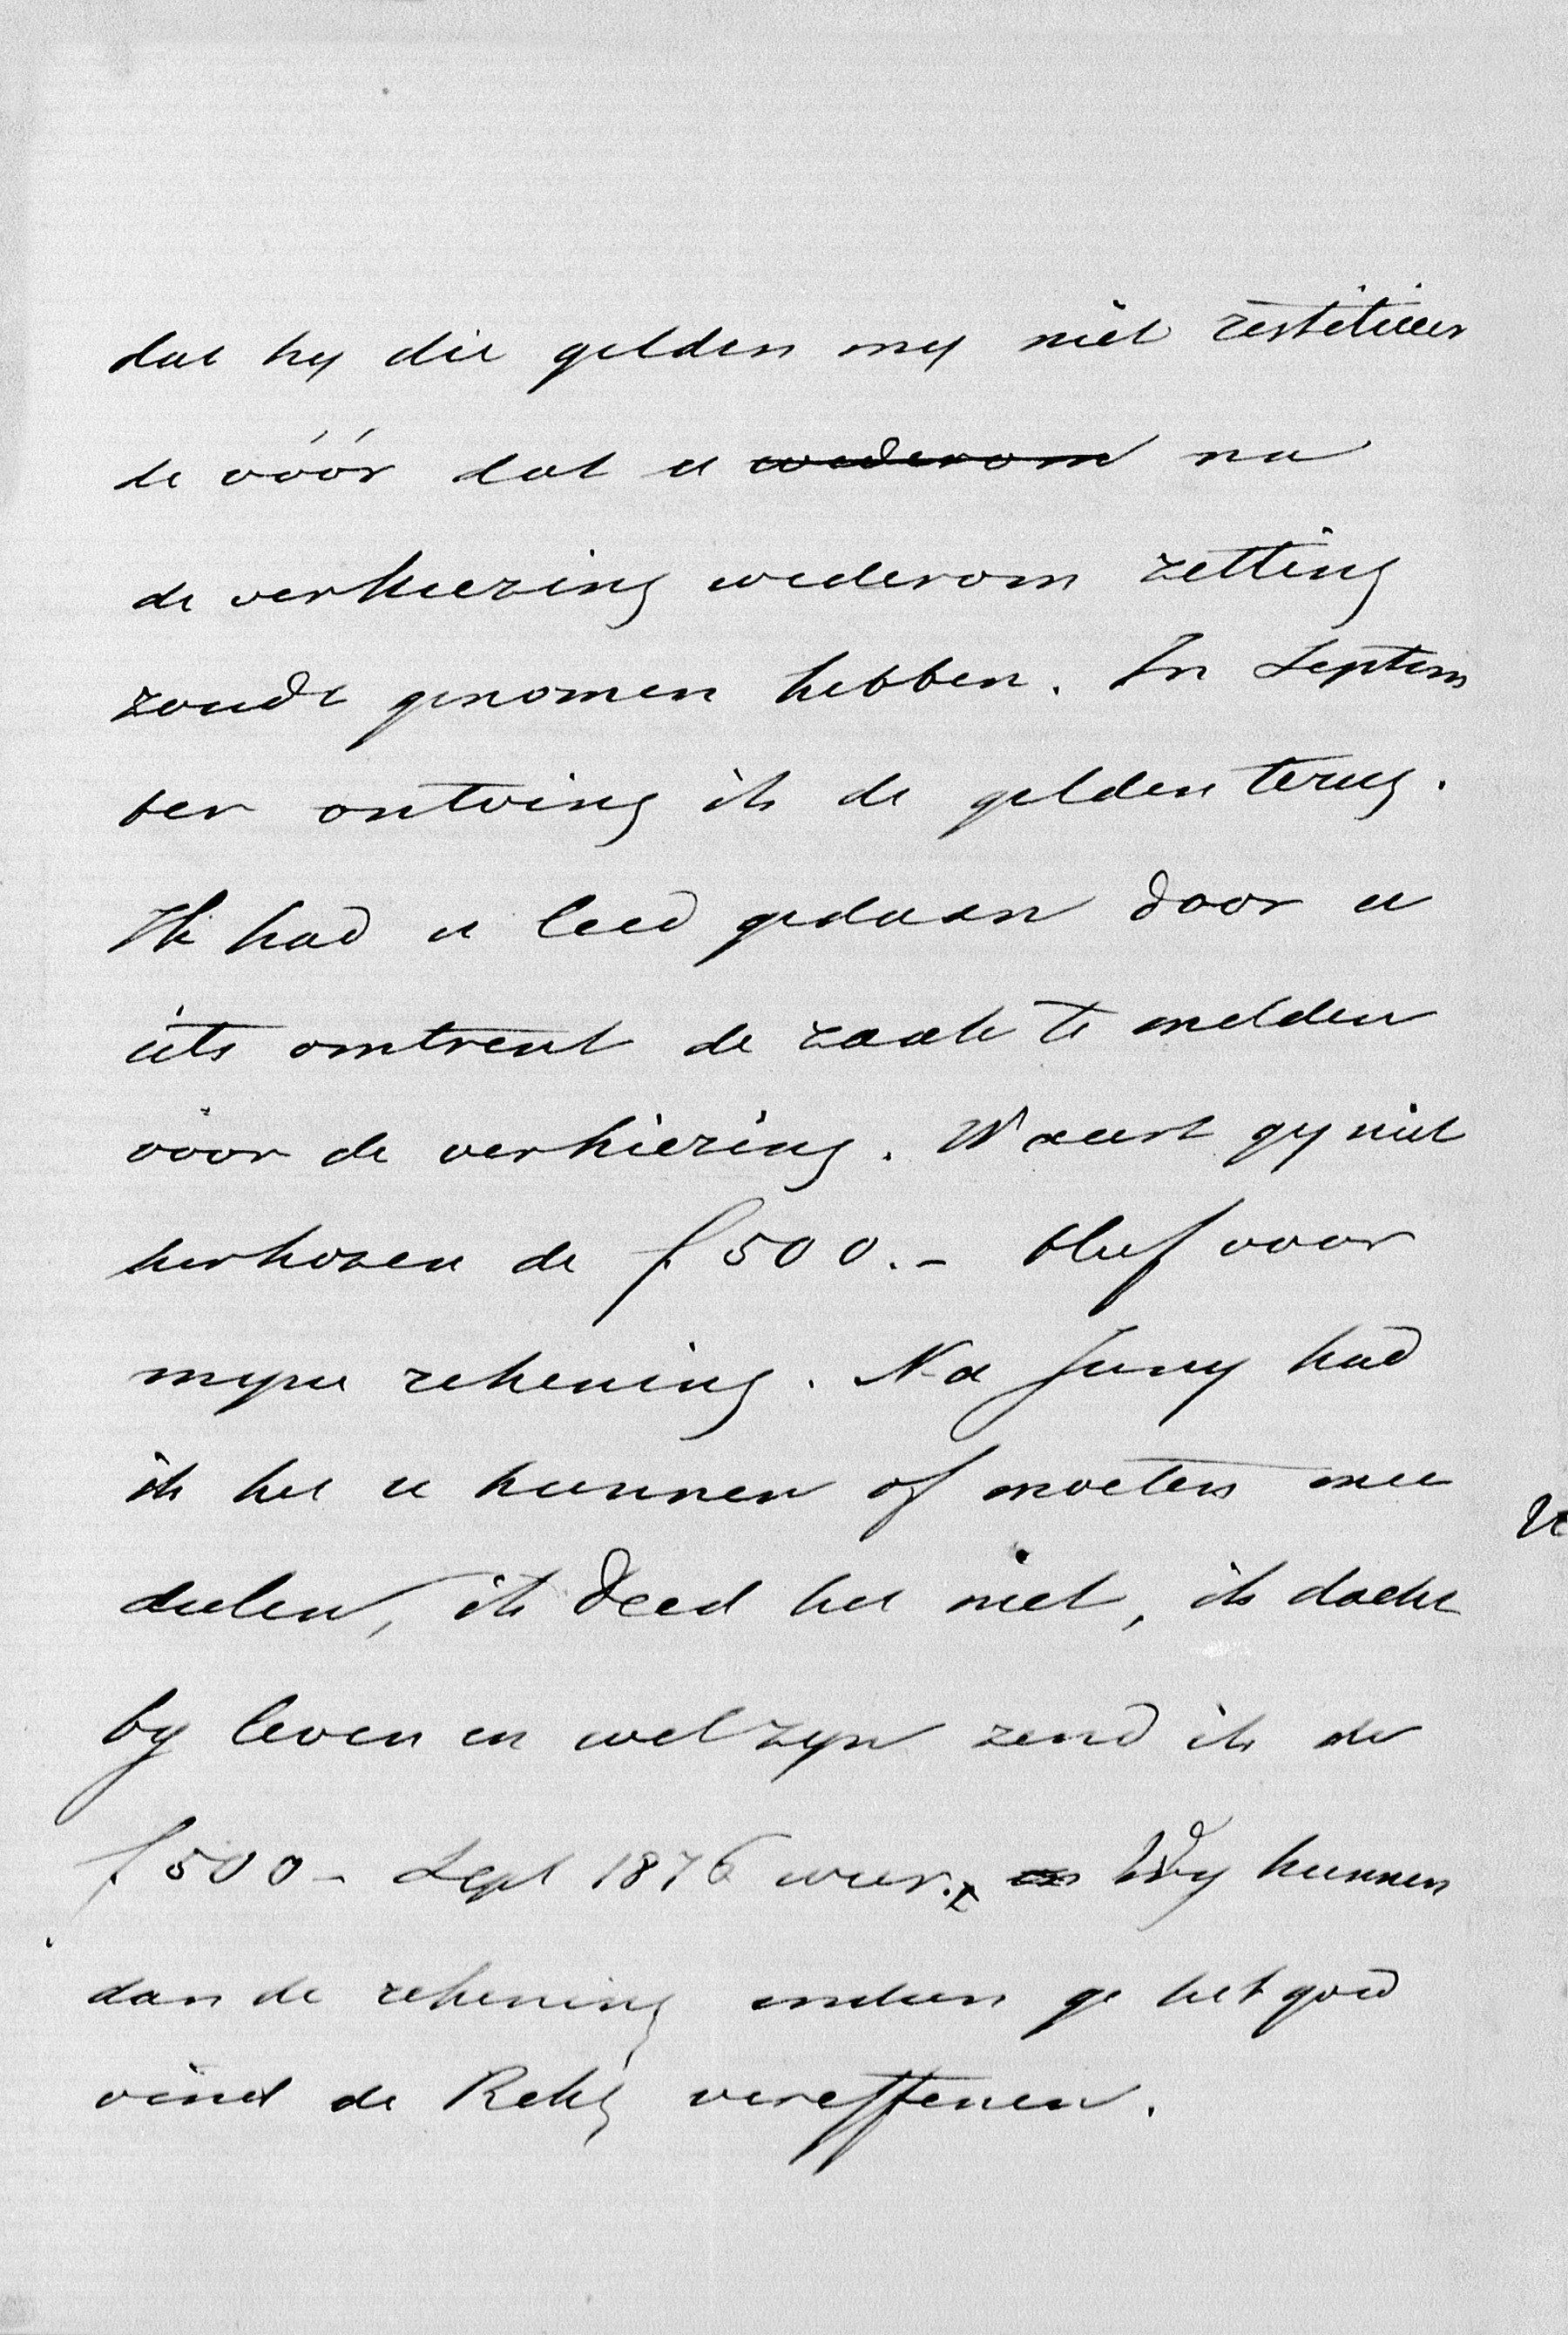 dat hy die gelden my niet restitueer
de vóór dat u wederom na
de verkiezing wederom zetting
zoudt genomen hebben. In Septem
ber ontving ik de gelden terug.
Ik had u leed gedaan door u
iets omtrent de zaak te melden
voor de verkiezing. Waart gy niet
herkozen de f 500.- bleef voor
myne rekening. Na Juny had
ik het u kunnen of moeten mee
deelen, ik deed het niet, ik dacht
by leven en welzyn zend ik de
f 500 - Sept 1876 weer. en Wy kunnen
dan de rekening indien ge het goed
vind de Rekg vereffenen.